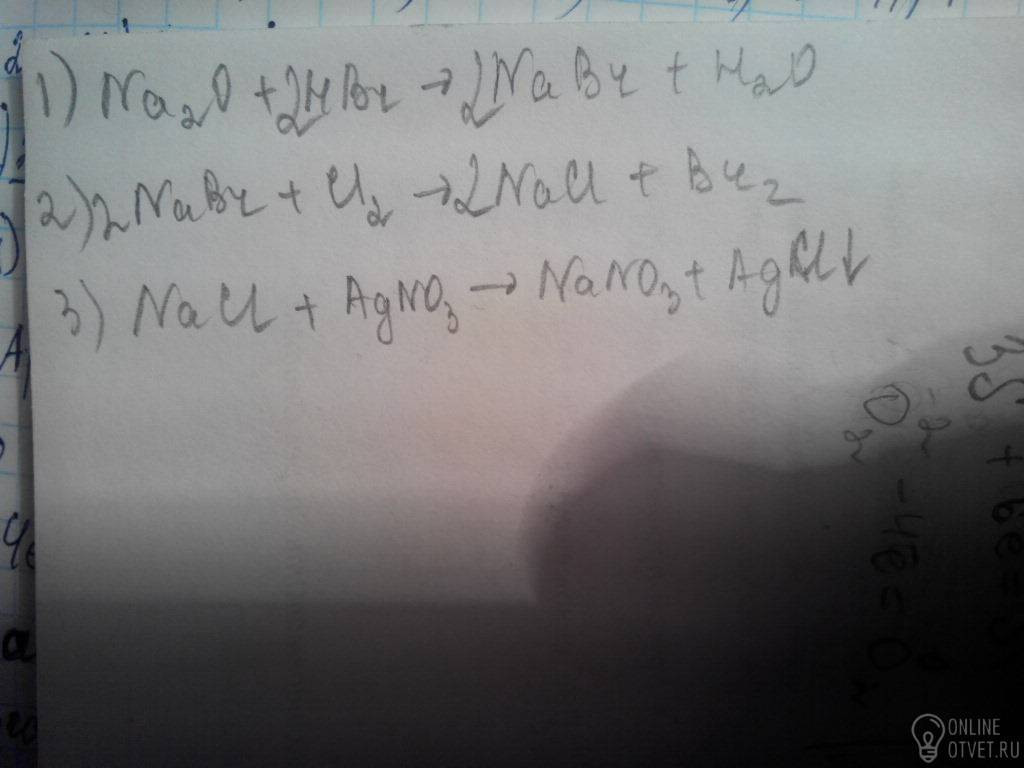 1) Na₂O + 2HBr → 2NaBr + H₂O
2) 2NaBr + Cl₂ → 2NaCl + Br₂
3) NaCl + AgNO₃ → NaNO₃ + AgCl↓
ONLINE
OTVET.RU